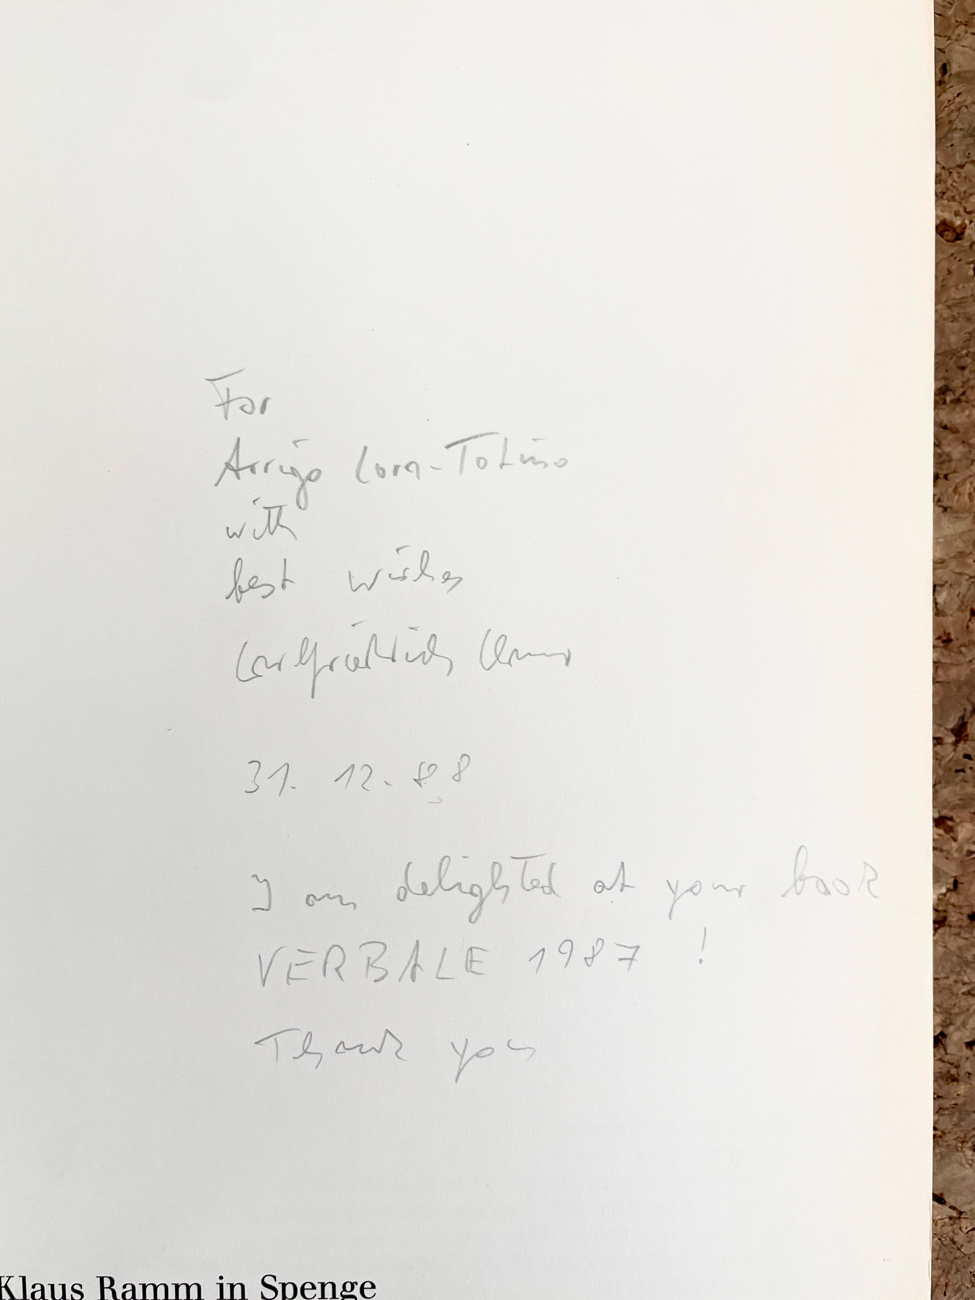 For
Arrigo Lora-Totino
with
best wishes
Carlfriedrich Claus
31. 12. 88
I am delighted at your book
VERBALE 1987 !
Thank you
Klaus Ramm in Spenge